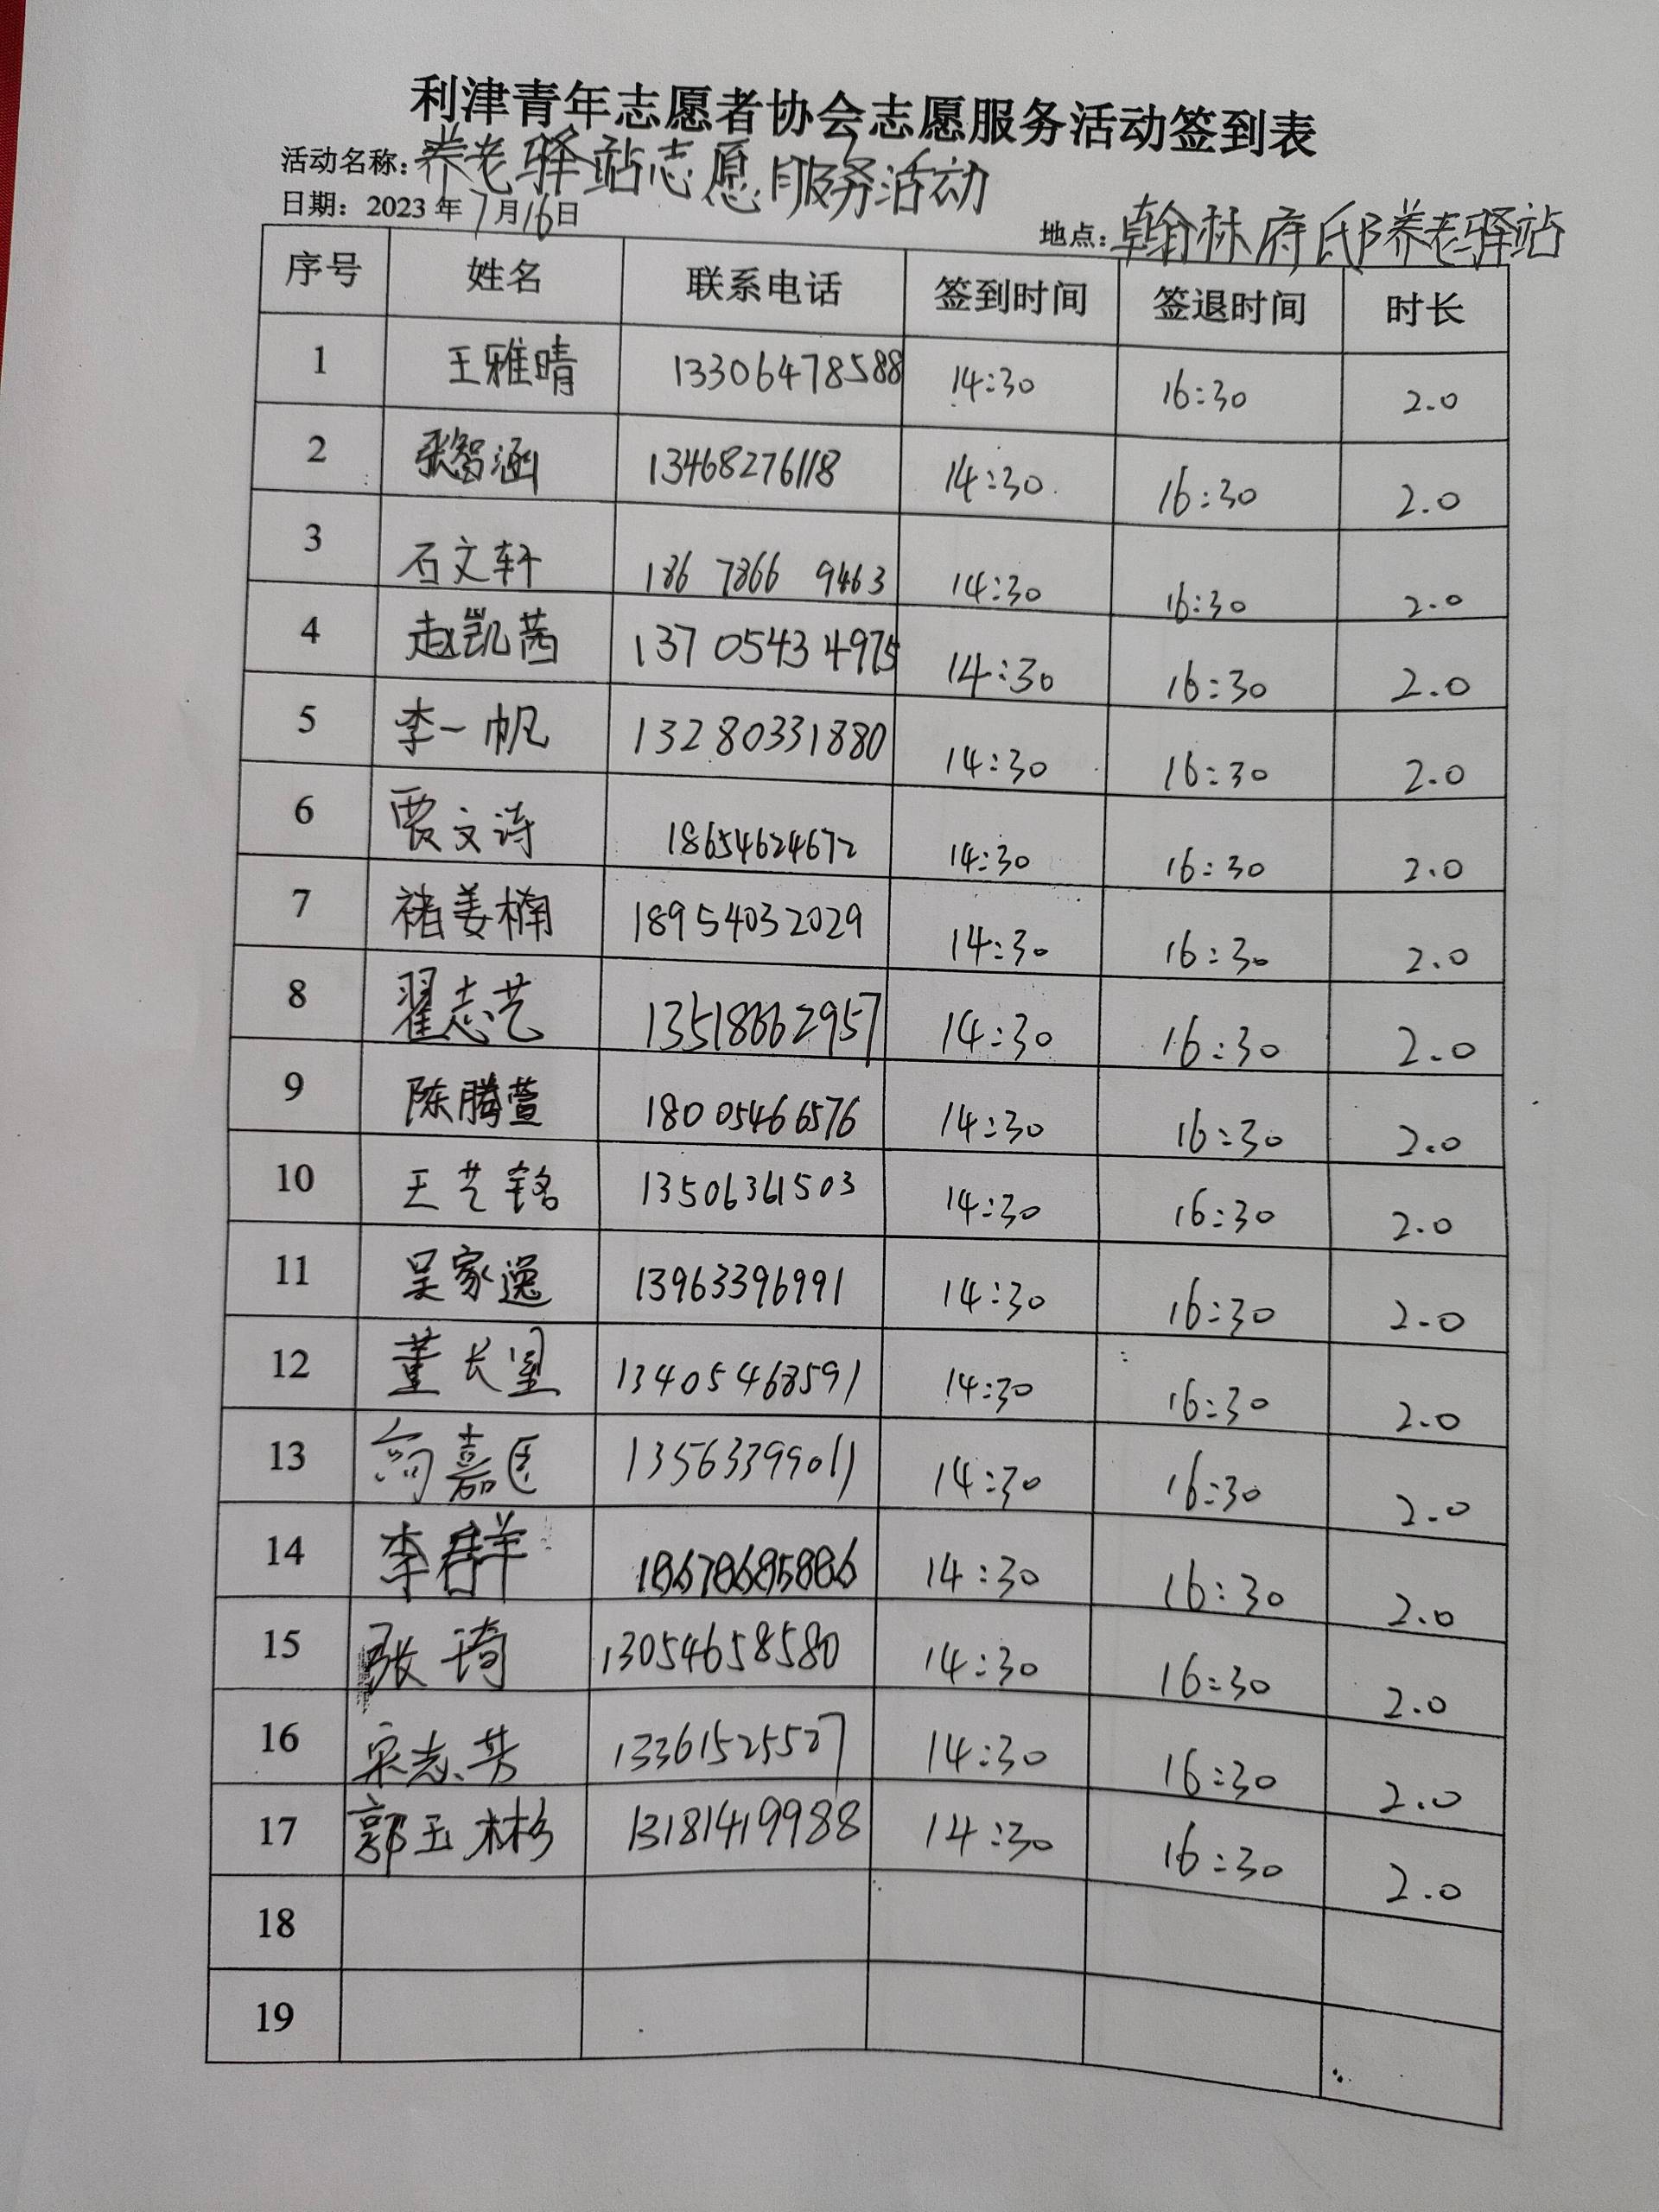 利津青年志愿者协会志愿服务活动签到表
活动名称：养老驿站志愿服务活动
日期：2023年7月16日 地点：翰林府邸养老驿站
序号 姓名 联系电话 签到时间 签退时间 时长
1 王雅晴 13306478588 14:30 16:30 2.0
2 张智涵 13468276118 14:30 16:30 2.0
3 石文轩 186 7866 9463 14:30 16:30 2.0
4 赵凯茜 137 0543 4975 14:30 16:30 2.0
5 李一帆 13280331880 14:30 16:30 2.0
6 贾文诗 18654624672 14:30 16:30 2.0
7 褚姜楠 18954032029 14:30 16:30 2.0
8 翟志艺 13518662957 14:30 16:30 2.0
9 陈腾萱 18005466576 14:30 16:30 2.0
10 王艺铭 13506361503 14:30 16:30 2.0
11 吴家逸 13963396991 14:30 16:30 2.0
12 董长 13405468591 14:30 16:30 2.0
13 嘉 13563399011 14:30 16:30 2.0
14 李群 18678685886 14:30 16:30 2.0
15 张琦 13054658580 14:30 16:30 2.0
16 宋志芳 13361525527 14:30 16:30 2.0
17 郭玉彬 13181419988 14:30 16:30 2.0
18
19